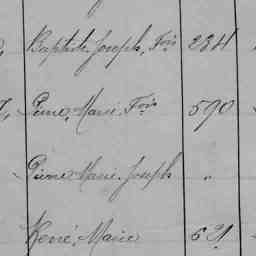 Baptiste Joseph, Fois 234
Pierre, Marie, Fois 590
Pierre Marie Joseph "
René, Marie 621